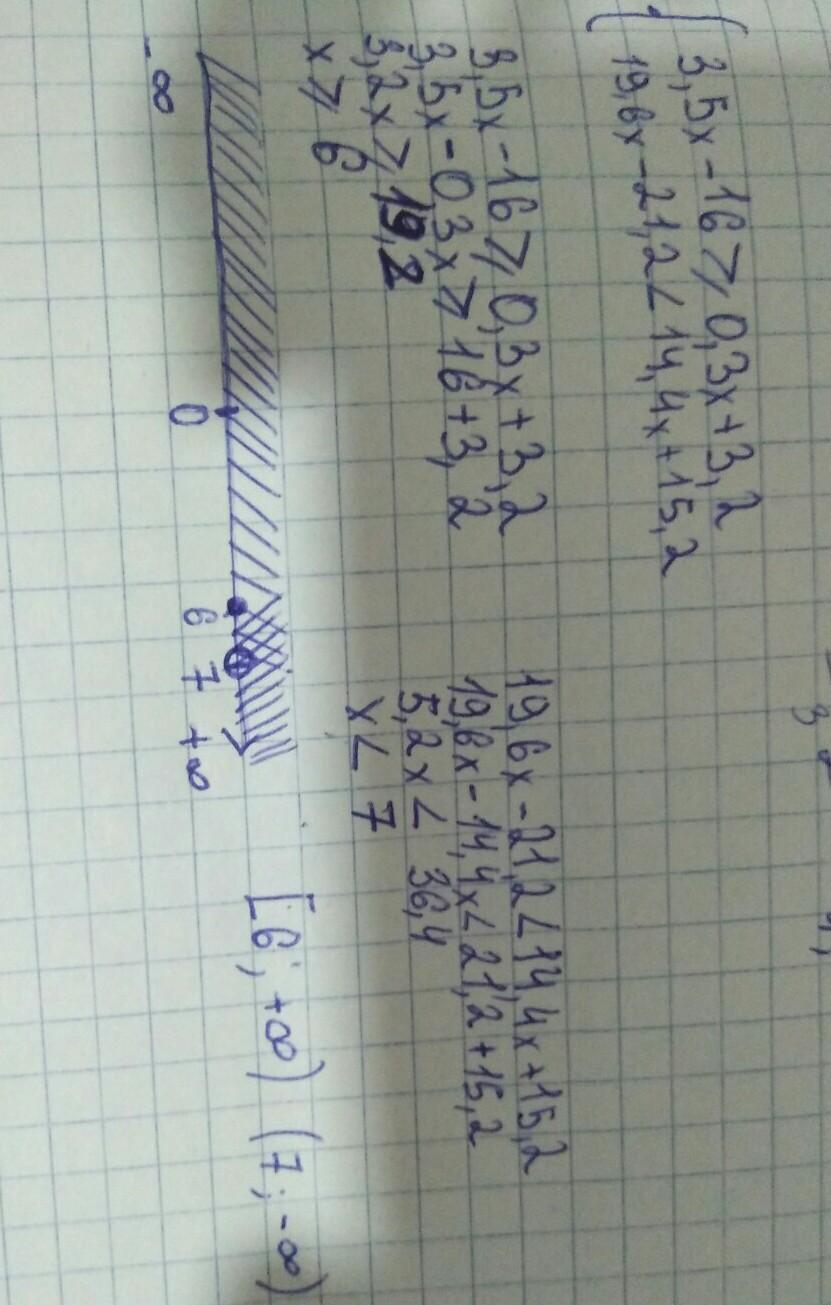 3,5x-16⩾0,3x+3,2
19,6x-21,2<14,4x+15,2
3,5x-16⩾0,3x+3,2
3,5x-0,3x⩾16+3,2
3,2x⩾19,2
x⩾6
19,6x-21,2<14,4x+15,2
19,6x-14,4x<21,2+15,2
5,2x<36,4
x<7
-∞ 0 6 7 +∞
[6;+∞) (7;-∞)